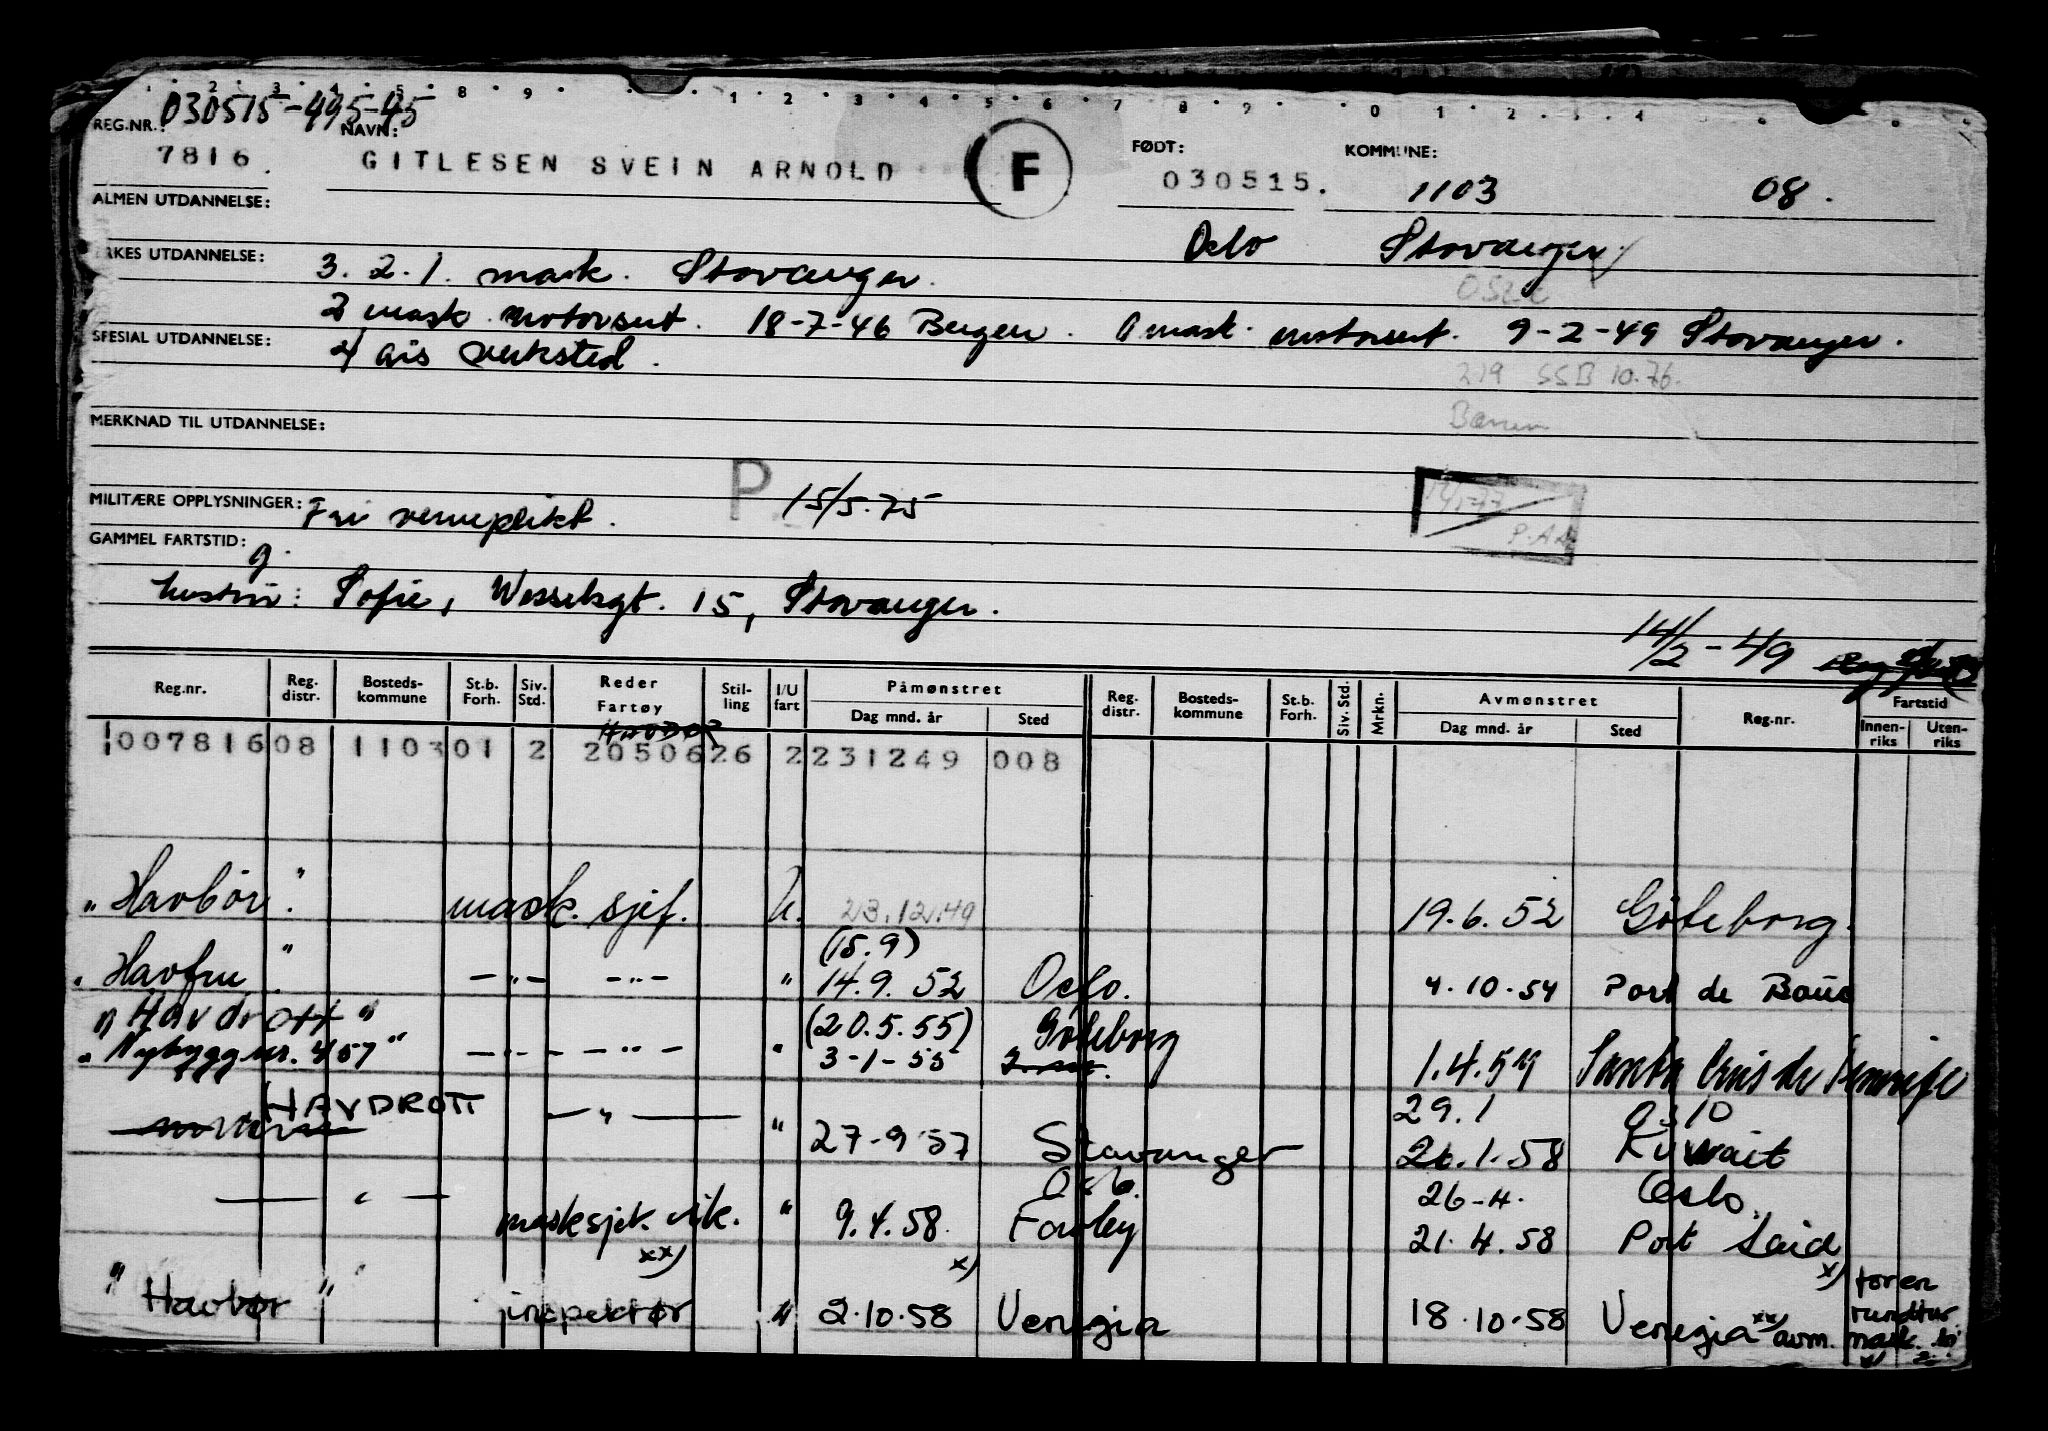 2 3 4 5 8 9 1 2 3 4 5 6 7 8 9 0 1 2 3 4
REG.NR.: 030515-495-45 NAVN: FØDT: KOMMUNE:
7816. GITLESEN SVEIN ARNOLD F 030515. 1103 08.
ALMEN UTDANNELSE: Oslo Stavanger
RKES UTDANNELSE: 3. 2. 1. mask. Stavanger.
2 mask. motorsert. 18-7-46 Bergen. 1 mask. motorsert. 9-2-49 Stavanger.
SPESIAL UTDANNELSE: 4 års verksted.
219 SSB 10.76.
MERKNAD TIL UTDANNELSE: Bærum
MILITÆRE OPPLYSNINGER: Fri verneplikt. P 15/5.75
GAMMEL FARTSTID:
hustru: Sofie, Wesselsgt. 15, Stavanger.
14/2-49
Reg.nr. Reg. distr. Bosteds- kommune St.b. Forh. Siv. Std. Reder Fartøy Stil- ling I/U fart Påmønstret Dag mnd. år Sted Reg. distr. Bosteds- kommune St.b. Forh. Siv. Std. Mrkn. Avmønstret Dag mnd. år Sted Reg.nr. Fartstid Innen- riks Uten- riks
007816 08 1103 01 2 20506 26 2 231249 008
"Havbør". mask. sjef. U. 23.12.49 19.6.52 Göteborg.
(15.9)
"Havfru" -"- -"- " 14.9.52 Oslo. 4.10.54 Port de Bouc
"Havdrott" (20.5.55) Göteborg
"Nybygg nr. 407" -"- -"- " 3-1-55 1.4.57 Santa Cruis de Tenerife
HAVDROTT -"- " 29.1 Oslo
27-9 57 Stavanger 26.1.58 Kuwait
Oslo. 26-4. Oslo.
-"- masksjef. vik. " 9.4.58 Fawley 21.4.58 Port Said
xx) x) x) for en
"Havbør" inspektør " 2.10.58 Venezia 18.10.58 Venezia xx) avm. rundtur
mask.